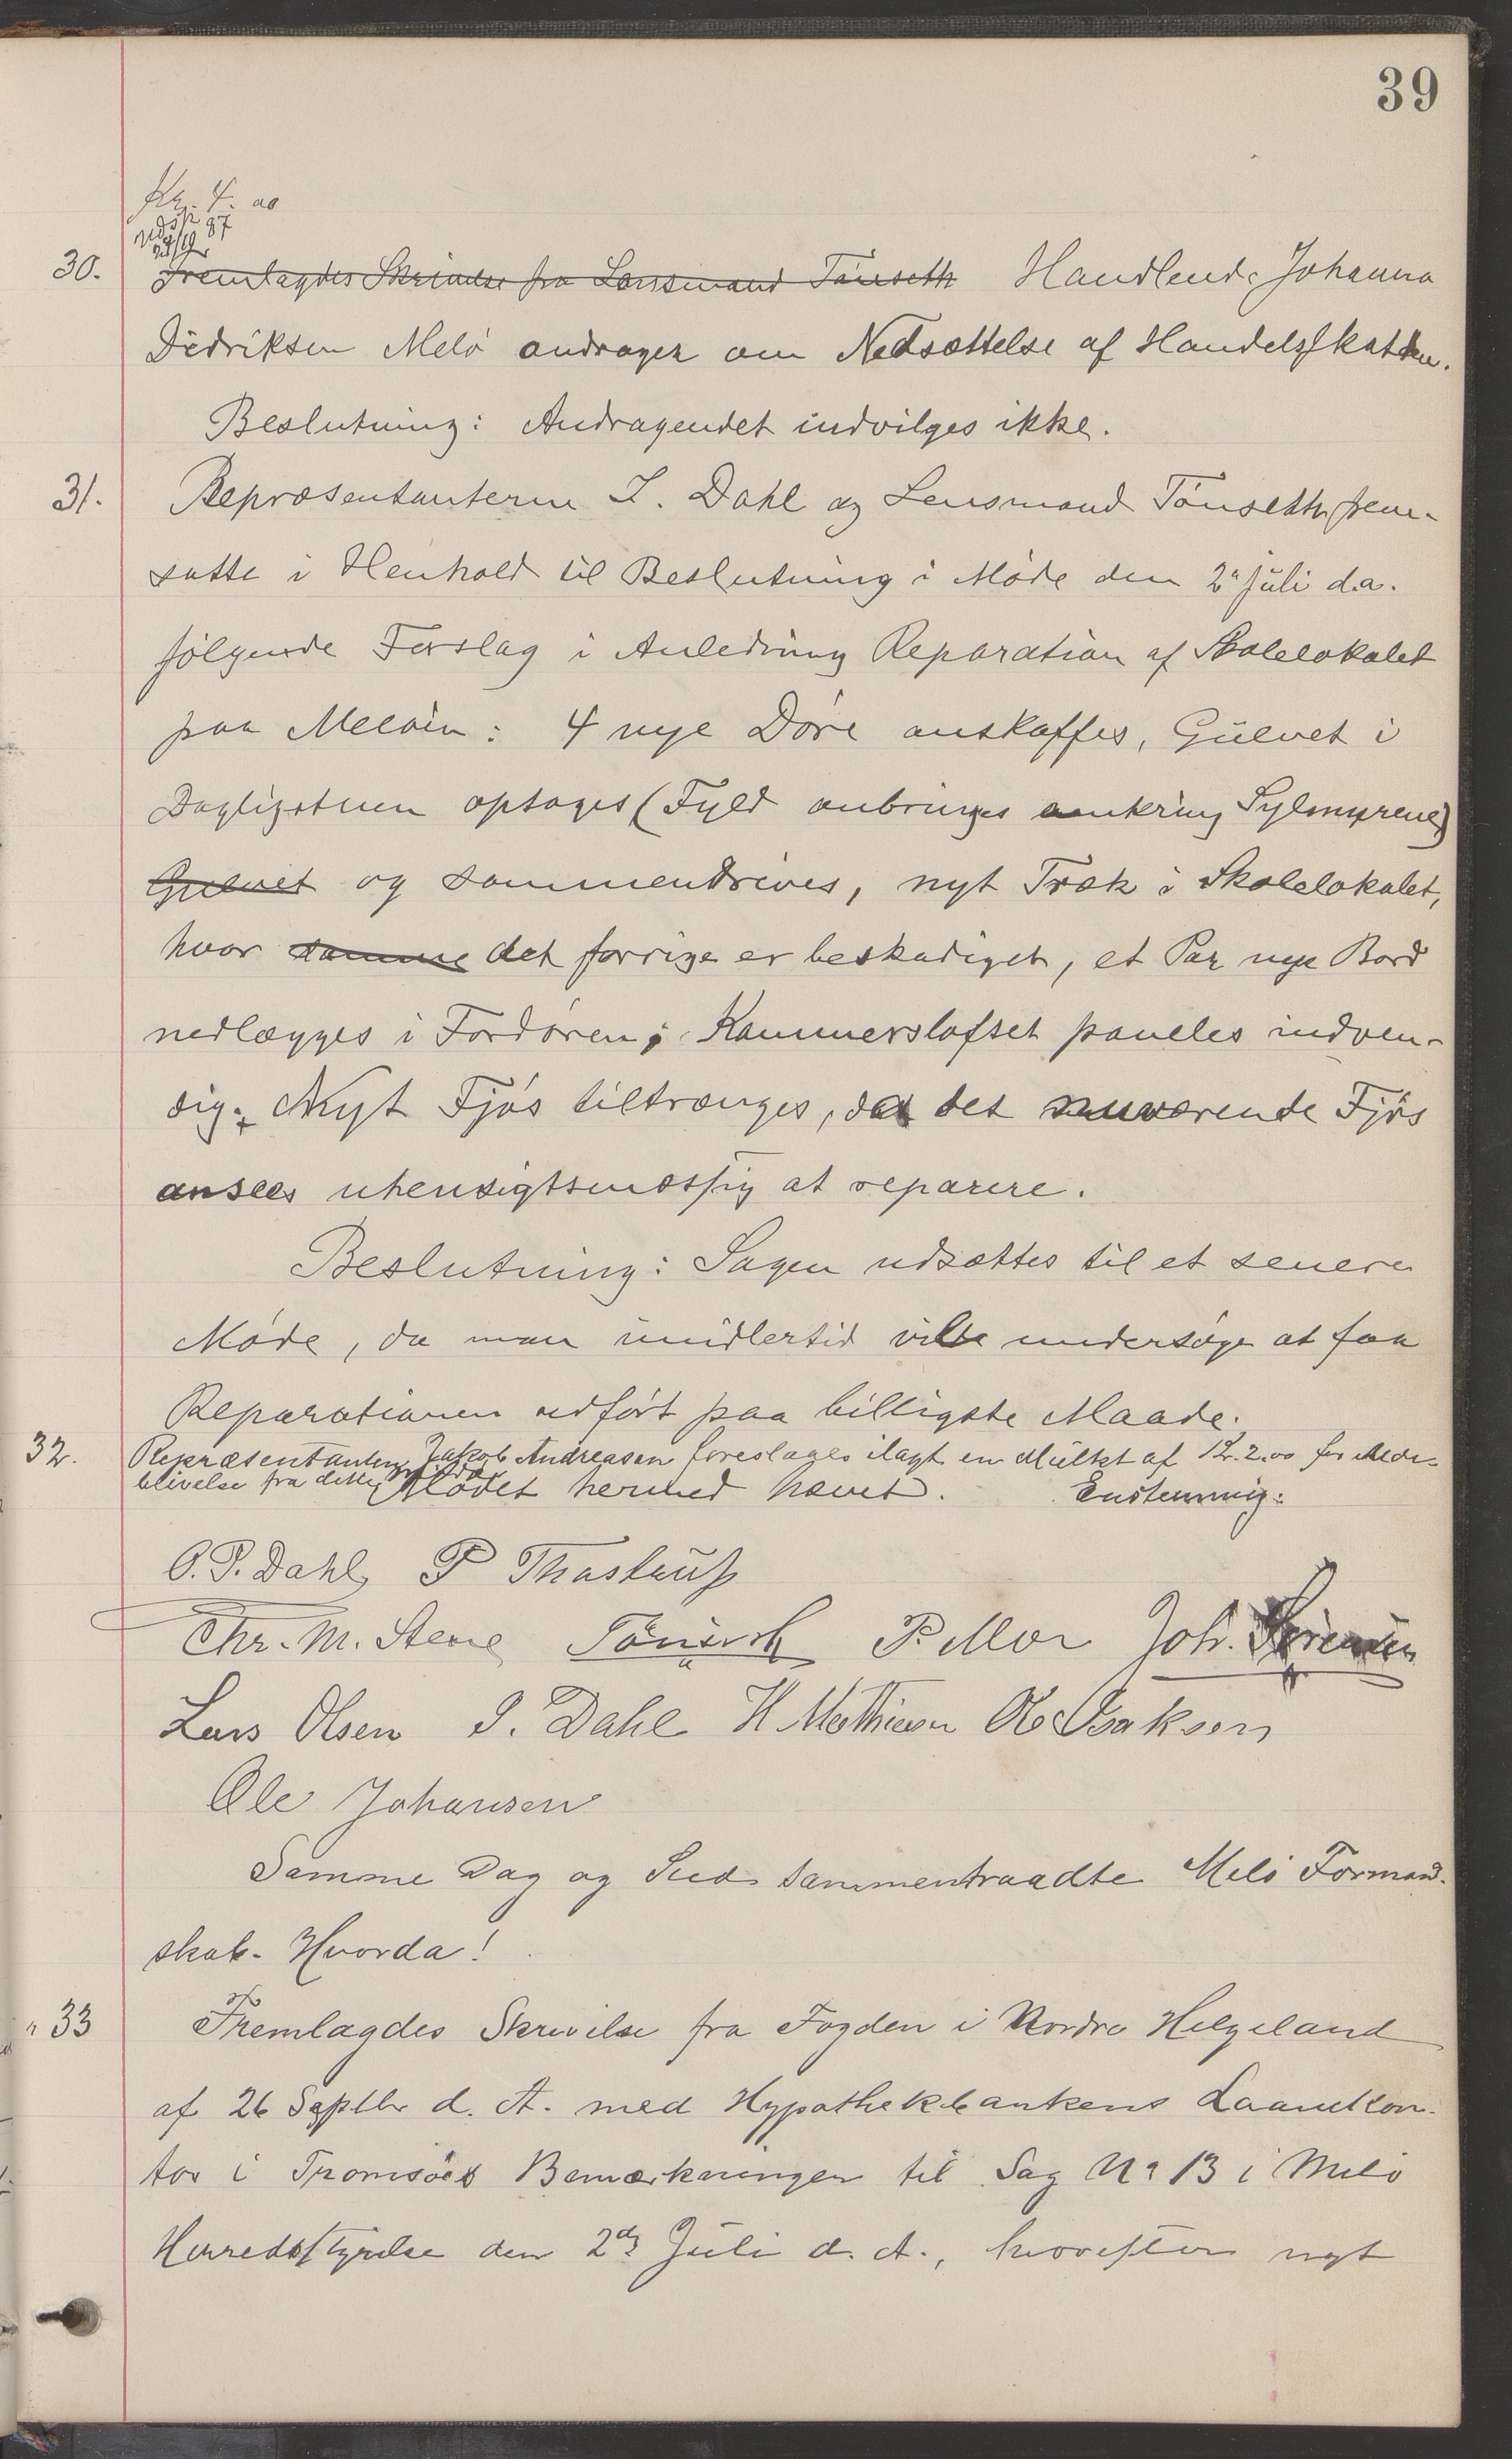 39
Kr. 4. 00
30. ~~Fremlagdes Skrivelse fra Lensmand Tönseth~~ Handlende Johanna
Didriksen Melö andrager om Nedsættelse af Handelsskatten.
Beslutning: Andragendet indvilges ikke.
31. Repræsentanterne I. Dahl og Lensmand Tönseth frem-
satte i Henhold til Beslutning i Möde den 2den Juli d.a.
fölgende Forslag i Anledning Reparation af Skolelokalet
paa Melöen: 4 nye Döre anskaffes, Gulvet i
Dagligstuen optages (Fyld anbringes omkring Sylmurene)
~~Gulvet~~ og sammendrives, nyt Træk i Skolelokalet,
hvor ~~samme~~ det forrige er beskadiget, et Par nye Bord
nedlægges i Fordören; Kammersloftet paneles indven-
dig; Nyt Fjös tiltrænges, da det nuværende Fjös
ansees uhensigtsmæssig at reparere.
Beslutning: Sagen udsættes til et senere
Möde, da man imidlertid vilde undersöge at faa
Reparationen udfört paa billigste Maade.
32. Repræsentanten Jakob Andreasen foreslages ilagt en Mulkt af Kr. 2.00 for Ude-
blivelse fra dette Möde. Enstemmig:
Mödet hermed hævet.
O. P. Dahl P Thastrup
Chr. M. Stene Tönseth P. Mor Joh. Sörensen
Lars Olsen I. Dahl H Mathiesen Ole Isaksen
Ole Johansen
Samme Dag og Sted sammentraadte Melö Formand-
skab. Hvorda!
" 33 Fremlagdes Skrivelse fra Fogden i Nordre Helgeland
af 26 Septbr d. A. med Hypothekbankens Laanekon-
tor i Tromsöes Bemærkninger til Sag No 13 i Melö
Herredsstyrelse den 2de Juli d. A., hvorefter nyt